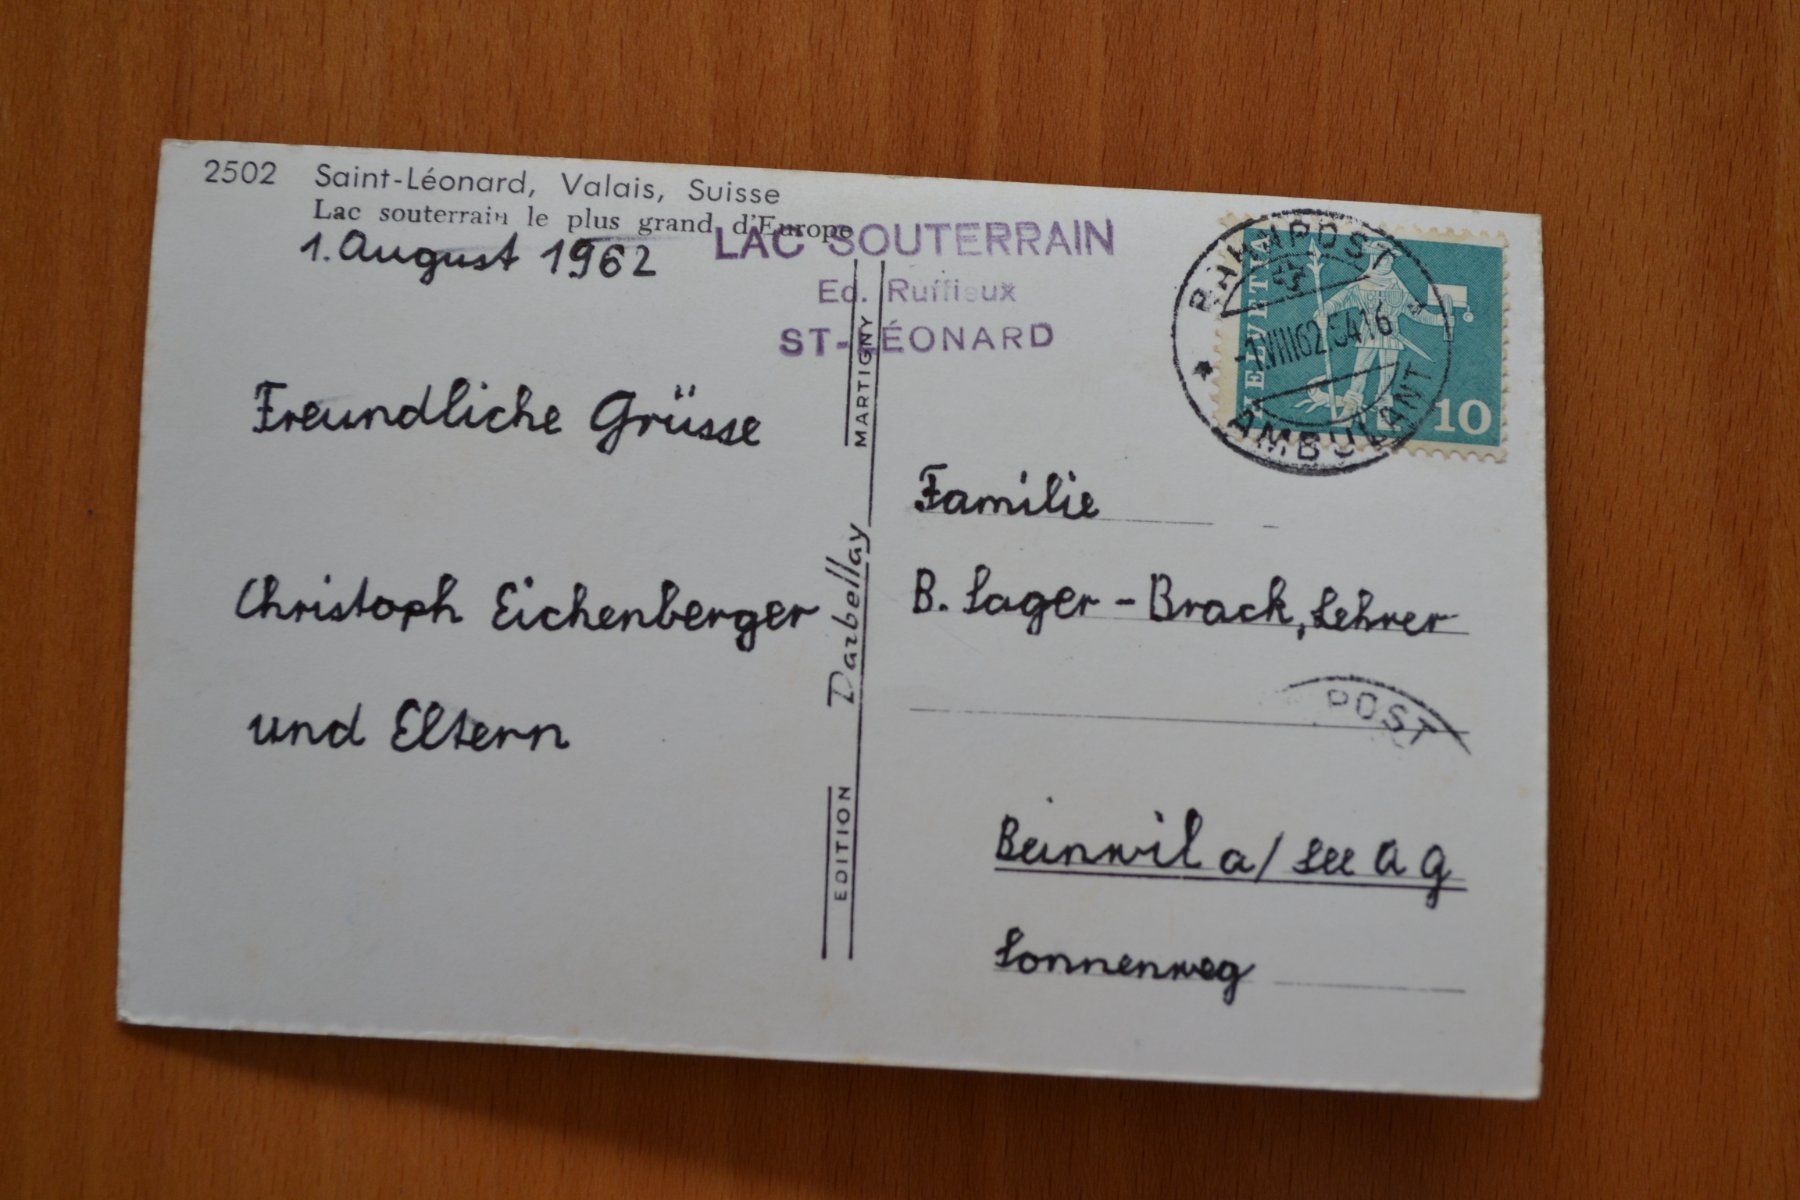 2502 Saint-Léonard, Valais, Suisse
Lac souterrain le plus grand d'Europe
1. August 1962
LAC SOUTERRAIN
Ed. Ruffieux
ST-LÉONARD
Freundliche Grüsse
Christoph Eichenberger
und Eltern
EDITION Darbellay MARTIGNY
HELVETIA
10
BAHNPOST
-1.VIII62.5416
AMBULANT
Familie
B. Sager-Brack, Lehrer
POST
Beinwil a/See AG
Sonnenweg